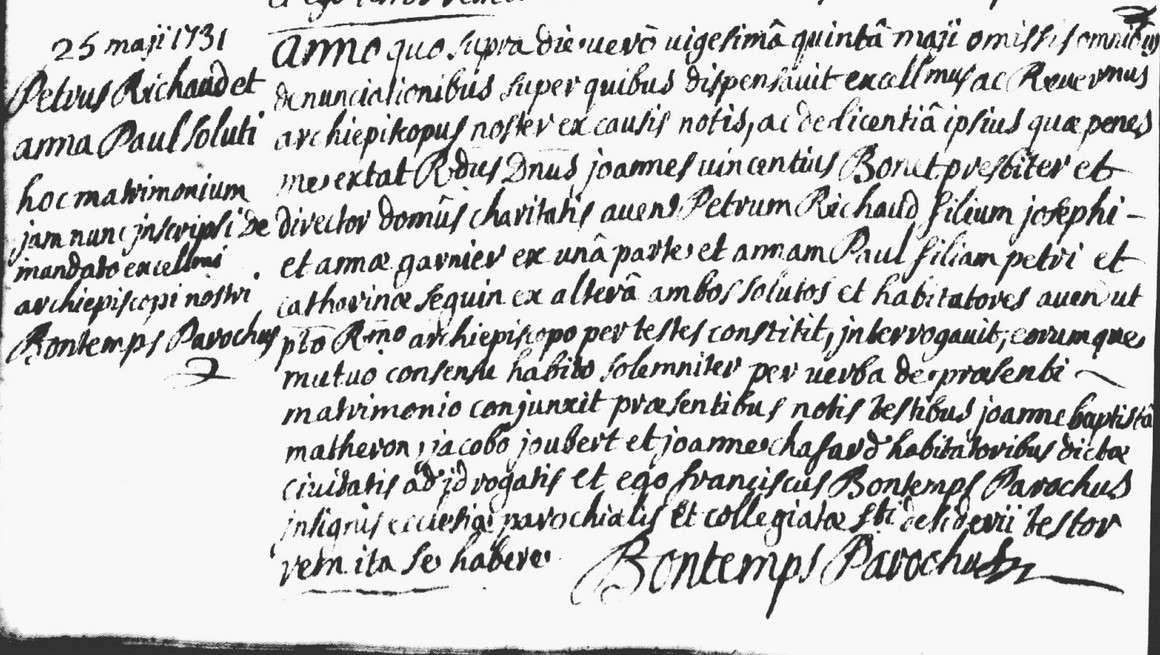 25 maji 1731
Petrus Richaud et
anna Paul soluti
hoc matrimonium
jam nunc jnscripsi De
mandato excellmi
archiepiscopi nostri
Bontemps Parochus
anno quo supra die verò vigesimâ quintâ maji omissis omnibus
denunciationibus super quibus dispensavit excellmus ac Revermus
archiepiscopus noster ex causis notis, ac de licentiâ ipsius quæ penes
me extat Rdus Dnus joannes vincentius Bonet presbiter et
director domûs charitatis aven. Petrum Richaud filium josephi -
et annæ garnier ex unâ parte et annam Paul filiam petri et
catharinæ seguin ex alterâ ambos solutos et habitatores aven ut
pto Rmo archiepiscopo per testes constitit, jnterrogavit, eorumque
mutuo consensu habito solemniter per verba de præsenti
matrimonio conjunxit præsentibus notis testibus joanne baptista
matheron, jacobo joubert et joanne chafard habitatoribus dictæ
civitatis ad jd rogatis et ego franciscus Bontemps Parochus
jnsignis ecclesiæ parochialis et collegiatæ Sti desiderii testor
rem ita se habere. Bontemps Parochus